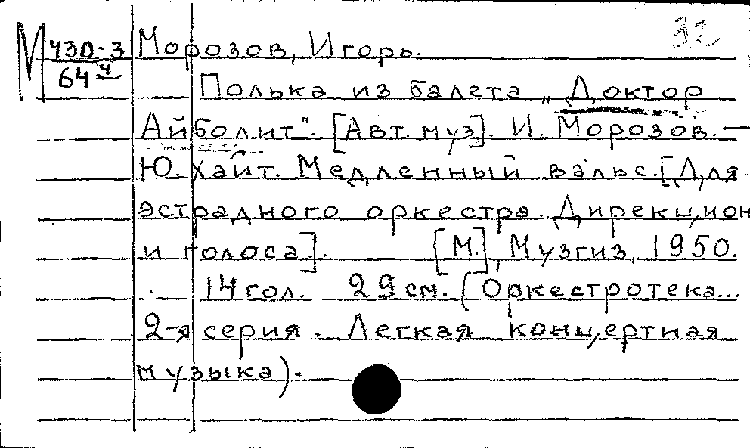 М 430-3 Морозов, Игорь. 32
64ч
Полька из балета „Доктор
Айболит". [Авт. муз]. И. Морозов. —
Ю. Хайт. Медленный вальс. [Для
эстрадного оркестра. Дирекцион
и голоса]. [М.], Музгиз, 1950.
14 гол. 29 см. (Оркестротека...
2-я серия. Легкая концертная
музыка).